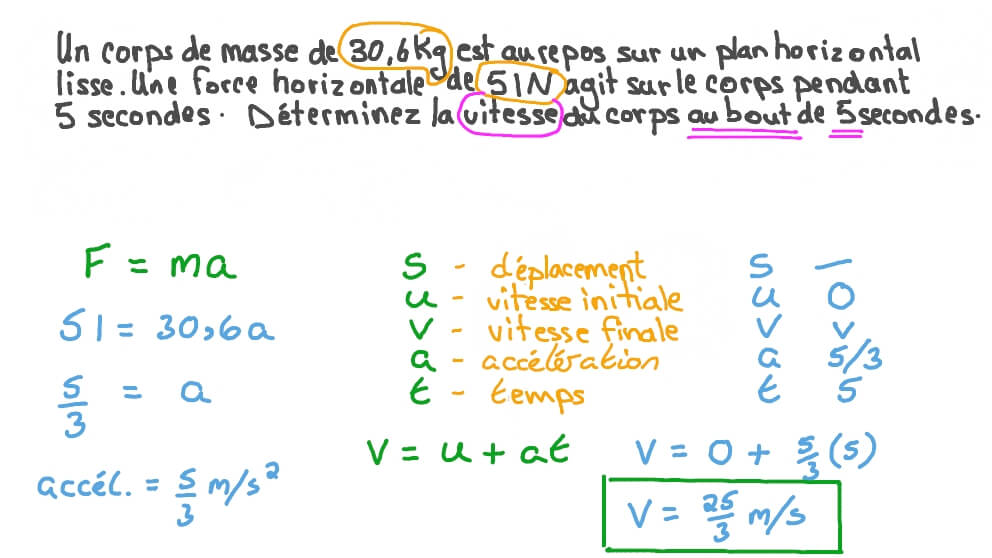 Un corps de masse de 30,6Kg est au repos sur un plan horizontal
lisse. Une force horizontale de 51N agit sur le corps pendant
5 secondes. Déterminez la vitesse du corps au bout de 5 secondes.
F = ma
51 = 30,6a
5/3 = a
accél. = 5/3 m/s²
s - déplacement
u - vitesse initiale
v - vitesse finale
a - accélération
t - temps
v = u + at
s —
u 0
v v
a 5/3
t 5
v = 0 + 5/3 (5)
v = 25/3 m/s